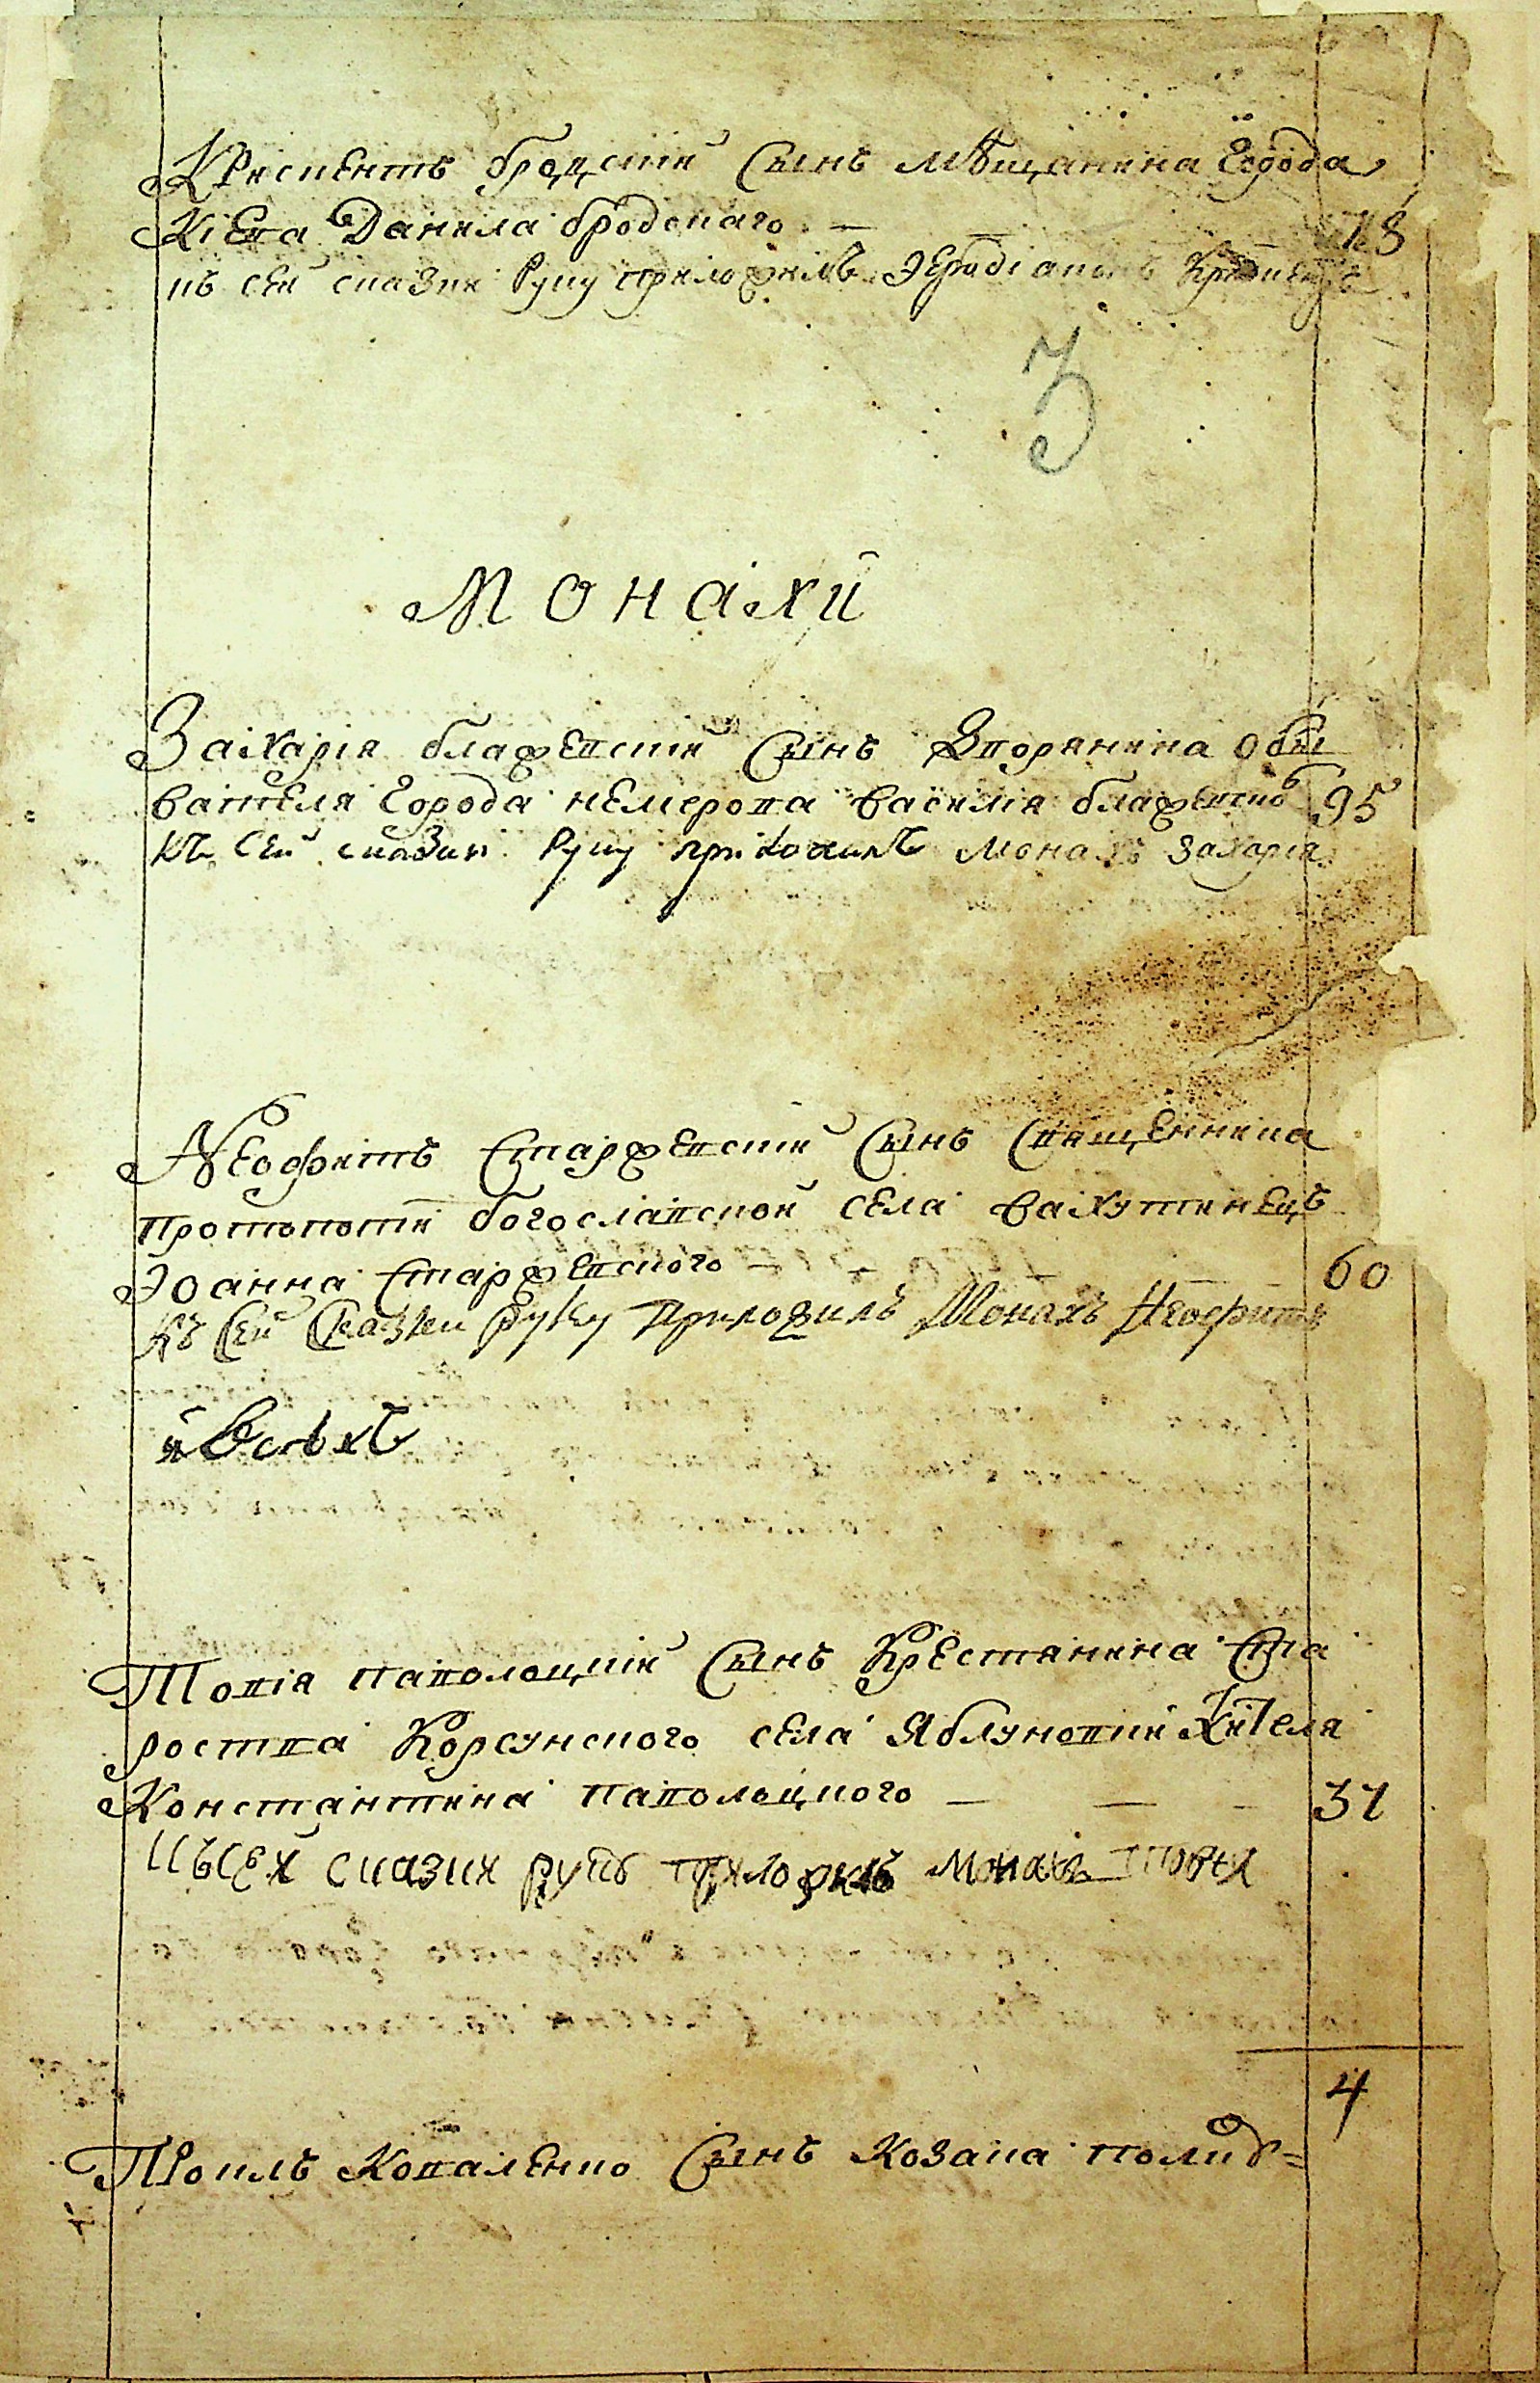 Криспентъ бродскій Сынъ мѣщанина Города
Кіева Данила бродскаго — 78
къ сей сказки Руку приложилъ Іеродіаконъ
3
Монахи
Захарія блажевскій Сынъ Дворянина обы
вателя Города немерова Василия блажевско 95
къ Сей сказки Руку приложилъ монахъ Захарія
Неофитъ Старжевскій Сынъ Священника
протопопіи богославской села Вахутинецъ
Іоанна Старжевского — — — 60
Къ Сей Сказки Руку Приложилъ Монахъ Неофитъ
и Всѣхъ
Товія паволоцкій Сынъ Крестянина Ста
роства Корсунского села Яблуновки Жителя
Константина паволоцкого — — — 37
Къ Сей сказки руку приложилъ монахъ Товія
4
Проклъ Коваленко Сынъ Козака полко=